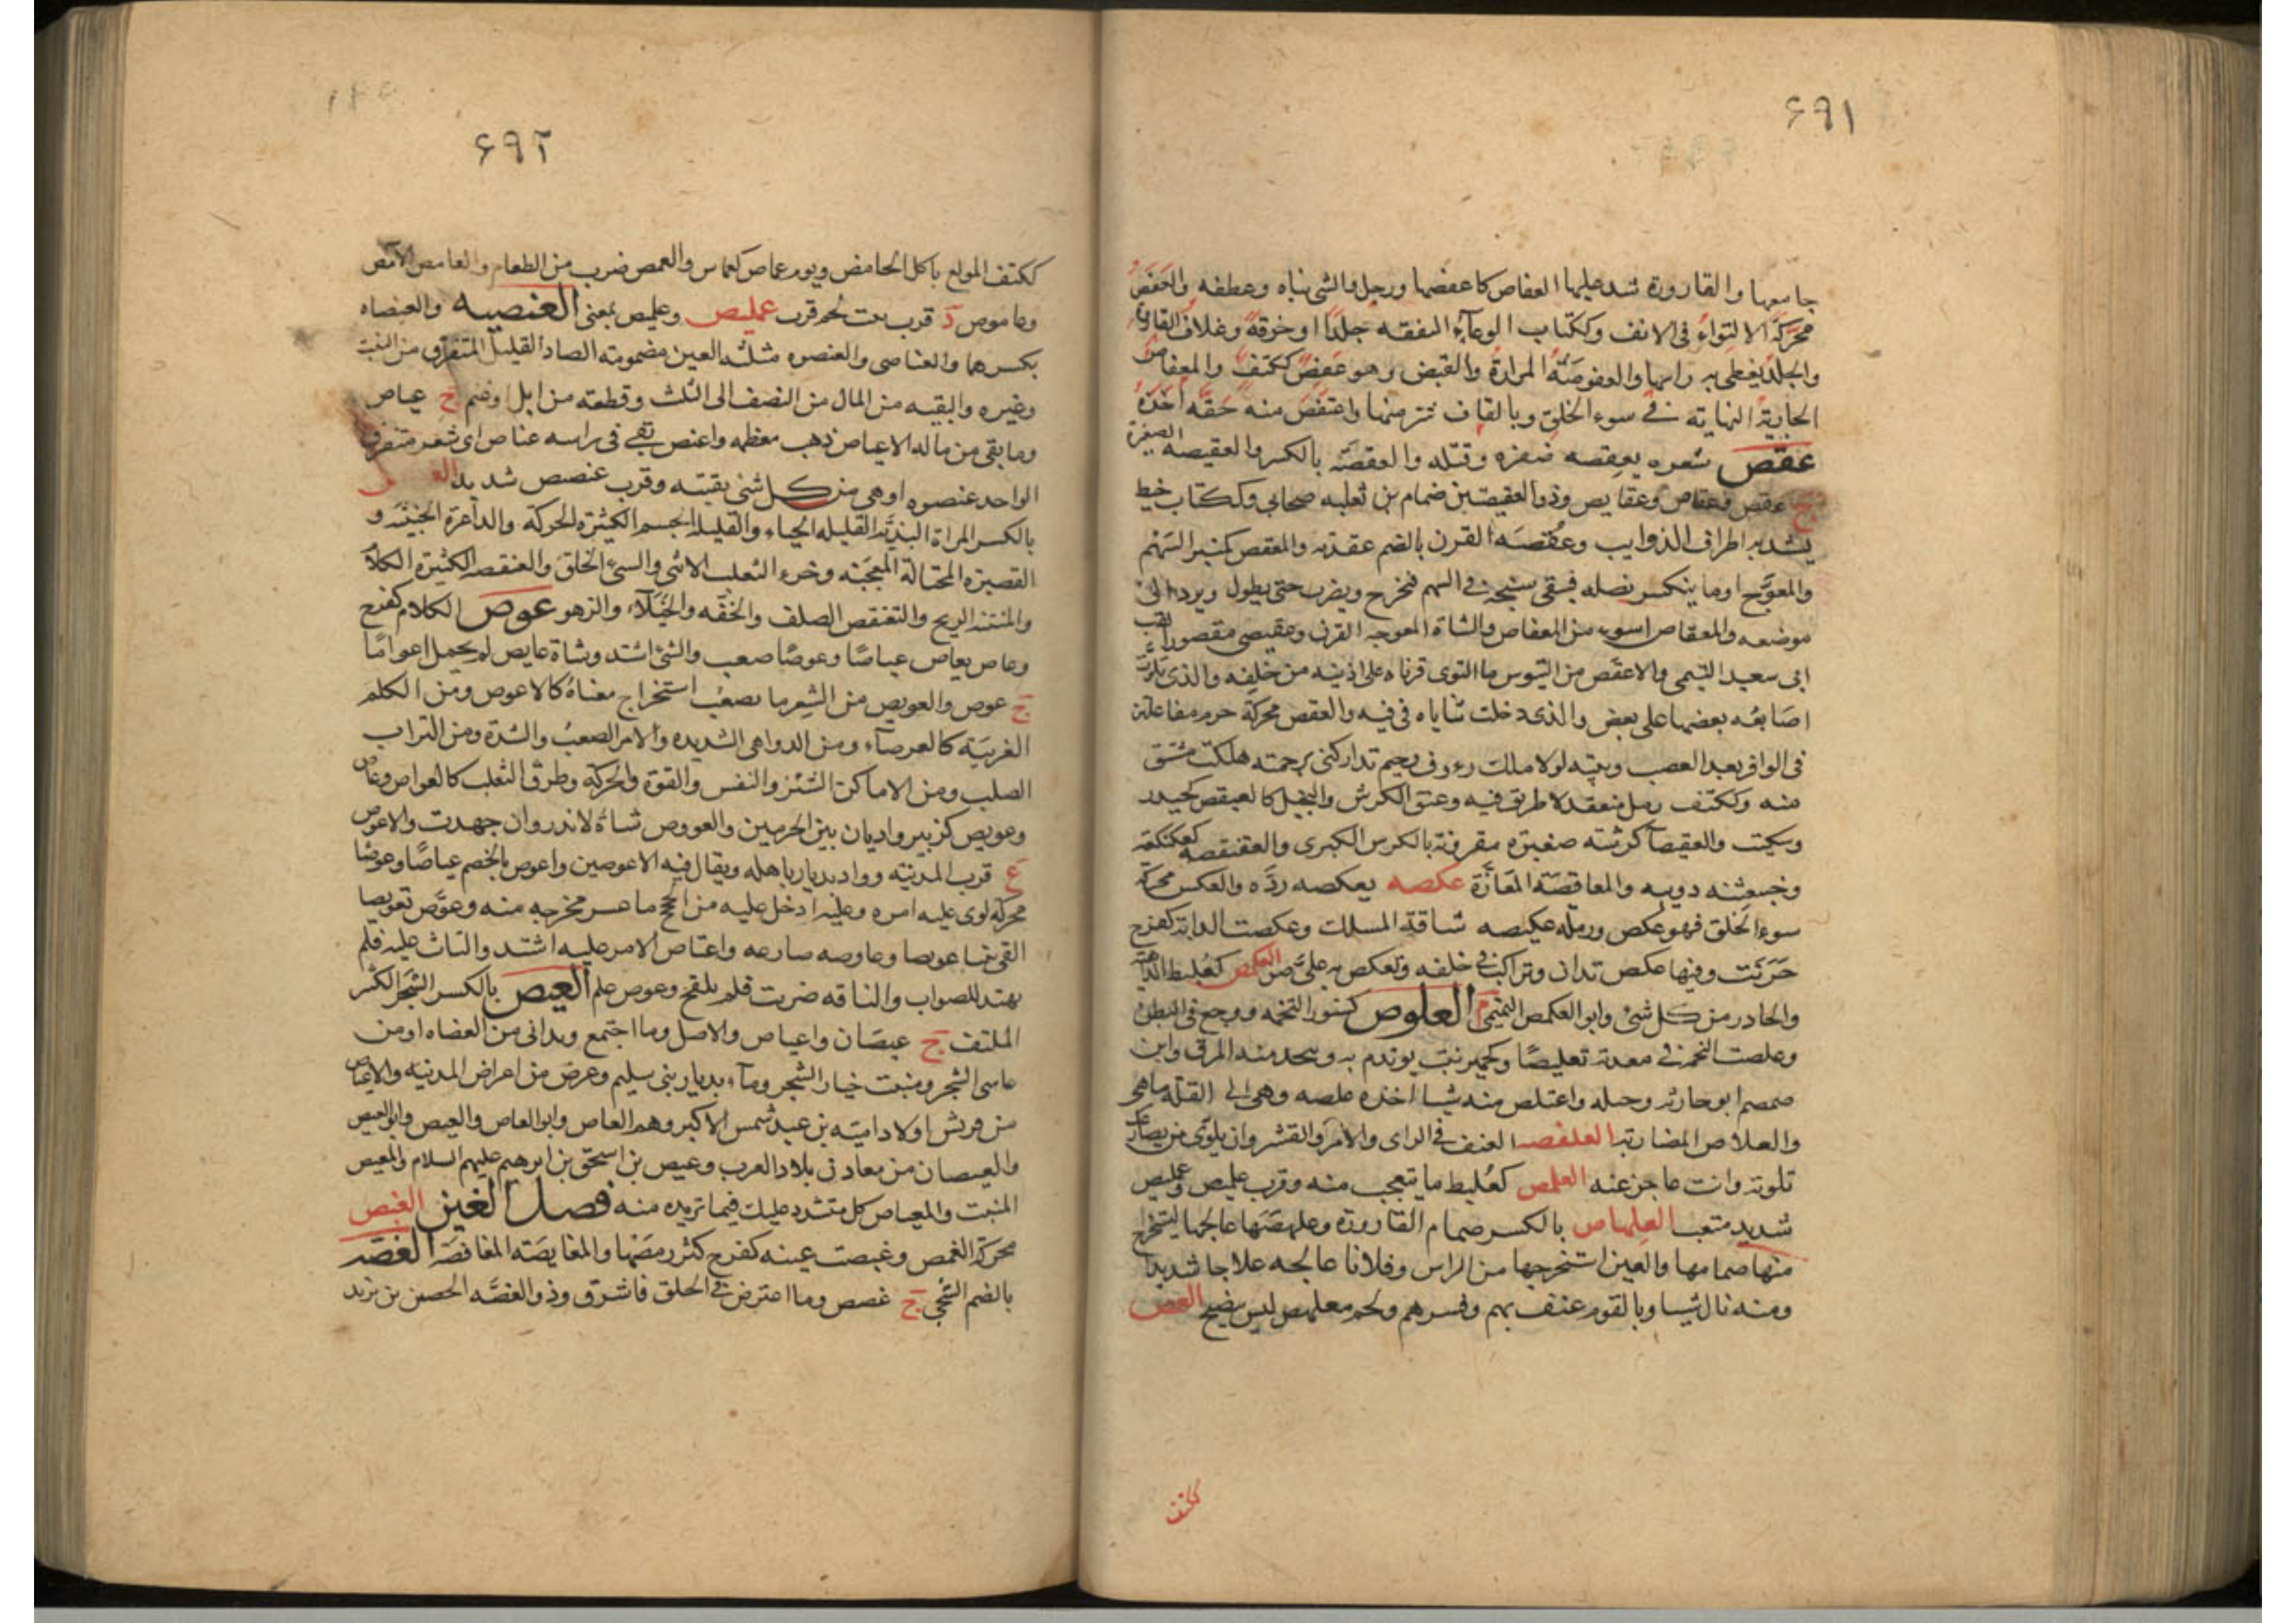 ۶۹۱
جامعها والقارورة شد عليها العفاص كاعفصها ورجل والشئ ثناه وعطفه والعفص
محركة الالتواء فى الانف وككتاب الوعاء النفقه جلدا او خرقة وغلاف القارورة
والجلد يغطى به راسها والعفوصة المرارة والقبض وهو عفص ككتف والمعفاص من
الجارية النهاية فى سوء الخلق وبالقاف شر منها واعتفص منه حقه اخذه
عقص شعره يعقصه ضفره وفتله والعقصة بالكسر والعقيصه الضفيرة
ج عقص وعقاص وعقايص وذو العقيصتين ضمام بن ثعلبه صحابى وككتاب خيط
يشد به اطراف الذوايب وعقصة القرن بالضم عقدته والمعقص كمنبر السهم
والمعوج او ما ينكسر نصله فيبقى سنخه فى السهم فيخرج ويضرب حتى يطول ويرد الى
موضعه والمعقاص اسوء من المعفاص والشاة المعوجه القرن وعقيصى مقصورا لقب
ابى سعيد التيمى والاعقص من التيوس ما التوى قرناه على اذنيه من خلفه والذى تلوت
اصابعه بعضها على بعض والذى دخلت ثناياه فى فيه والعقص محركة خرم مفاعلتن
فى الوافر بعد العصب وبيته لولا ملك رءوف رحيم تداركنى برحمته هلكت مشتق
منه وككتف رمل منعقد لا طريق فيه وعنق الكرش والبخيل كالعيقص كحيدر
وسكيت والعقيصا كرشة صغيرة مقرونة بالكرش الكبرى والعقنقصه كعكنكعة
وخبعثنه دويبه والمعاقصة المعازة عكصه يعكصه رده والعكص محركة
سوء الخلق فهو عكص ورملة عكيصه شاقة المسلك وعكصت الدابة كفرح
حرنت وفيها عكص تدان وتراكب فى خلفه وتعكص به على ضن العكمص كعلبط الداهية
والحادر من كل شئ وابو العكمص التيمى م العلوص كسنور التخمه ووجع فى البطن
وعلصت التخمة فى معدته تعليصا وكحمير نبت يوتدم به ويتخذ منه المرق وابن
ضمضم ابو حارثه وجبله واعتلص منه شيا اخذه علصه وهى الى القلة ماهى
والعلاص المضاربة العلفصه العنف فى الراى والامر والقسر وان يلوى من يصارعك
تلوية وانت عاجز عنه العلمص كعلبط ما يتعجب منه وقرب عليص وعمليص
شديد متعب العلهاص بالكسر صمام القارورة وعلهصها عالجها ليستخرج
منها صمامها والعين استخرجها من الراس وفلانا عالجه علاجا شديدا
ومنه نال شيا وبالقوم عنف بهم وقسرهم ولحم معلهص ليس بنضيج العمص
ككتف
۶۹۲
ككتف المولع باكل الحامض ويوم عماص كعماس والعمص ضرب من الطعام والعامص الآمص
وعاموص د قرب بيت لحم قرب عمليص وعليص بمعنى العنصيه والعنصاه
بكسرهما والعناصى والعنصوه مثلثه العين مضمومة الصاد القليل المتفرق من النبت
وغيره والبقيه من المال من النصف الى الثلث وقطعة من ابل او غنم ج عناص
وما بقى من ماله الا عناص ذهب معظمه واعنص بقى فى راسه عناص اى شعر متفرق
الواحد عنصوه او هى من كل شئ بقيته وقرب عنصص شديد
بالكسر المراة البذية القليله الحياء والقليله الجسم الكثيرة الحركة والداعرة الخبيثة و
القصيرة المختالة المعجبه وجرو الثعلب الانثى والسئ الخلق والعنقصه الكثيرة الكلام
والمنتنه الريح والتعنقص الصلف والخفه والخيلاء والزهو عوص الكلام كفرح
وعاص يعاص عياصا وعوصا صعب والشئ اشتد وشاة عايص لم تحمل اعواما
ج عوص والعويص من الشعر ما يصعب استخراج معناه كالاعوص ومن الكلم
الغريبة كالعوصاء ومن الدواهى الشديده والامر الصعب والشدة ومن التراب
الصلب ومن الاماكن الشئز والنفس والقوة والحركة وطرق الثعلب كالعواص وعاص
وعويص كزبير واديان بين الحرمين والعووص شاة لا تدر وان جهدت والاعوص
ع قرب المدينه وواد بديار باهله ويقال فيه الاعوصين واعوص بالخصم عياصا وعوصا
محركة لوى عليه امره وعليه ادخل عليه من الحجج ما عسر مخرجه منه وعوص تعويصا
القى بيتا عويصا وعاوصه صارعه واعتاص الامر عليه اشتد والتاث عليه فلم
يهتد للصواب والناقه ضربت فلم تلقح وعوص علم العيص بالكسر الشجر الكثير
الملتف ج عيصان واعياص والاصل وما اجتمع وتدانى من العضاه او من
عاسى الشجر ومنبت خيار الشجر وماء بديار بنى سليم وعرض من اعراض المدينه والاعياص
من قريش اولاد اميه بن عبد شمس الاكبر وهم العاص وابو العاص والعيص وابو العيص
والعيصان من معادن بلاد العرب وعيص بن اسحق بن ابرهيم عليهم السلام والمعيص
المنبت والمعياص كل متشدد عليك فيما تريده منه فصل الغين الغبص
محركة الغمص وغبصت عينه كفرح كثر رمصها والمغابصة المغافصة الغصة
بالضم الشجى ج غصص وما اعترض فى الحلق فاشرق وذو الغصه الحصين بن يزيد